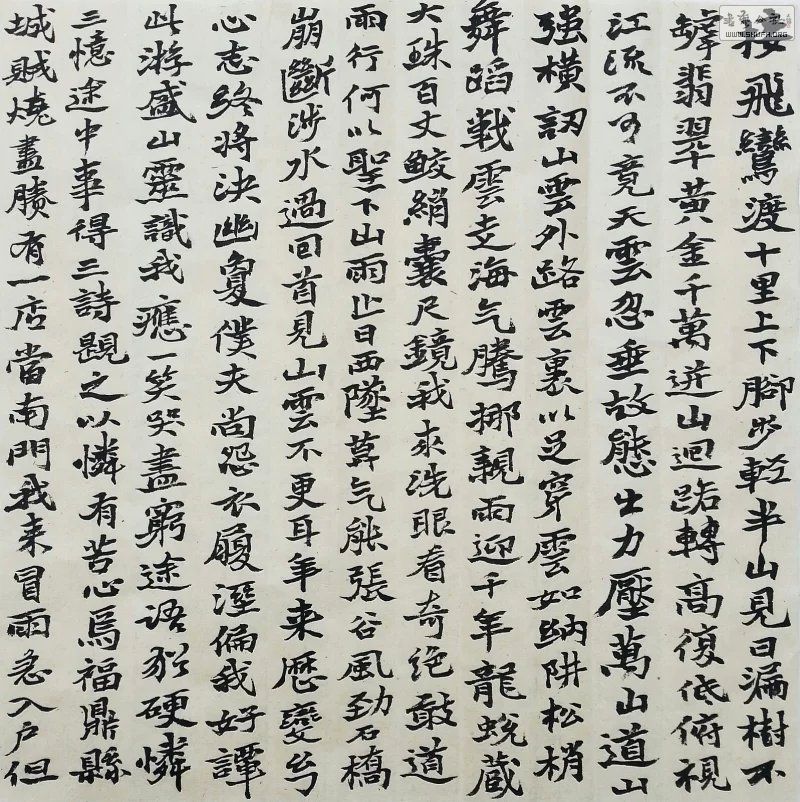 接飛鸞渡十里上下腳步輕半山見日漏樹不
罅翡翠黃金千萬迸山迴路轉高復低俯視
江流不可竟天雲忽垂故態出力壓萬山道山
強橫訒山雲外路雲裏以足穿雲如納阱松梢
舞蹈戰雲走海气騰挪親雨迎千年龍蛻藏
大珠百丈鮫綃囊尺鏡我来洗眼看奇絕敢道
雨行何以聖下山雨止日西墜莽气能張谷風勁石橋
崩斷涉水過回首見山雲不更耳年来歷變兮
心志終將決幽夐僕夫尚怨衣履溼偏我好譚
此游盛山靈識我應一笑哭盡窮途語猶硬憐
三憶途中事得三詩題之以憐有苦心焉福鼎縣
城賊燒盡賸有一店當南門我来冒雨急入户但
WWW.SHUFA.ORG